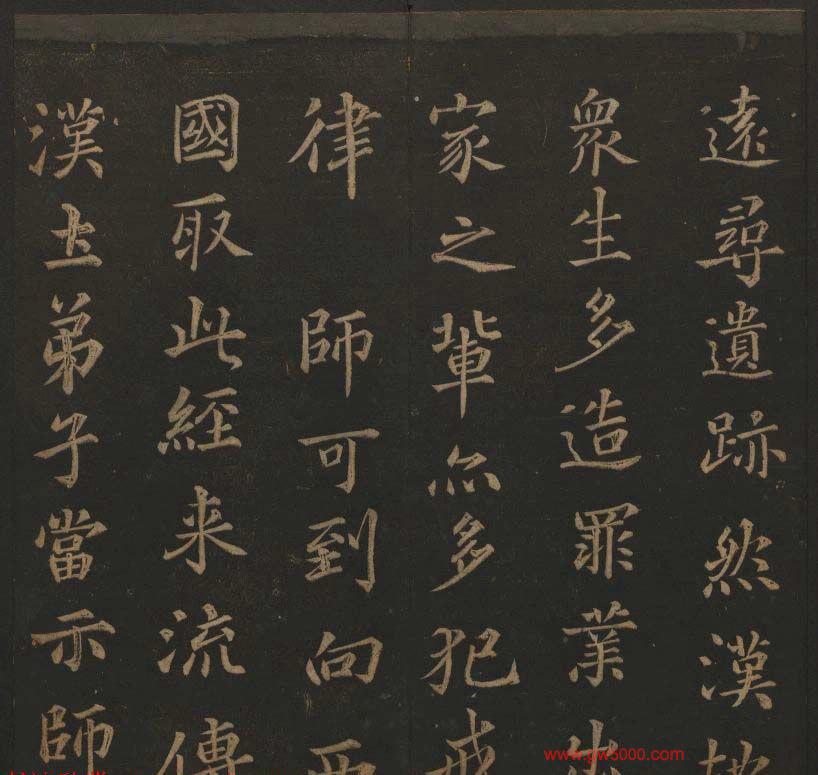 遠尋遺跡然漢地
衆生多造罪業出
家之輩亦多犯戒
律　師可到向西
國取此經来流傳
漢土弟子當示師
www.gw5000.com